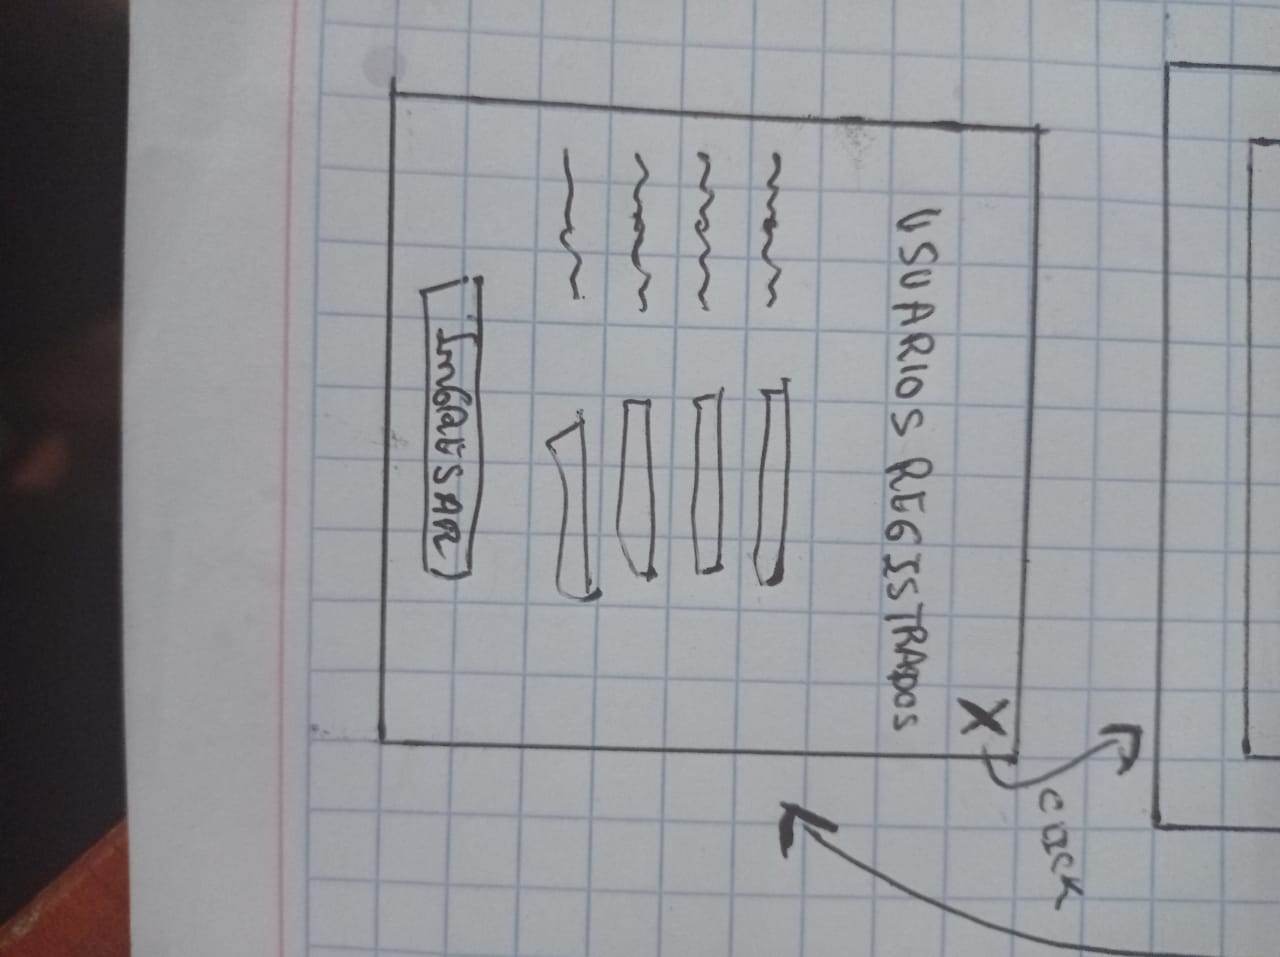 CLICK
X
USUARIOS REGISTRADOS
INGRESAR